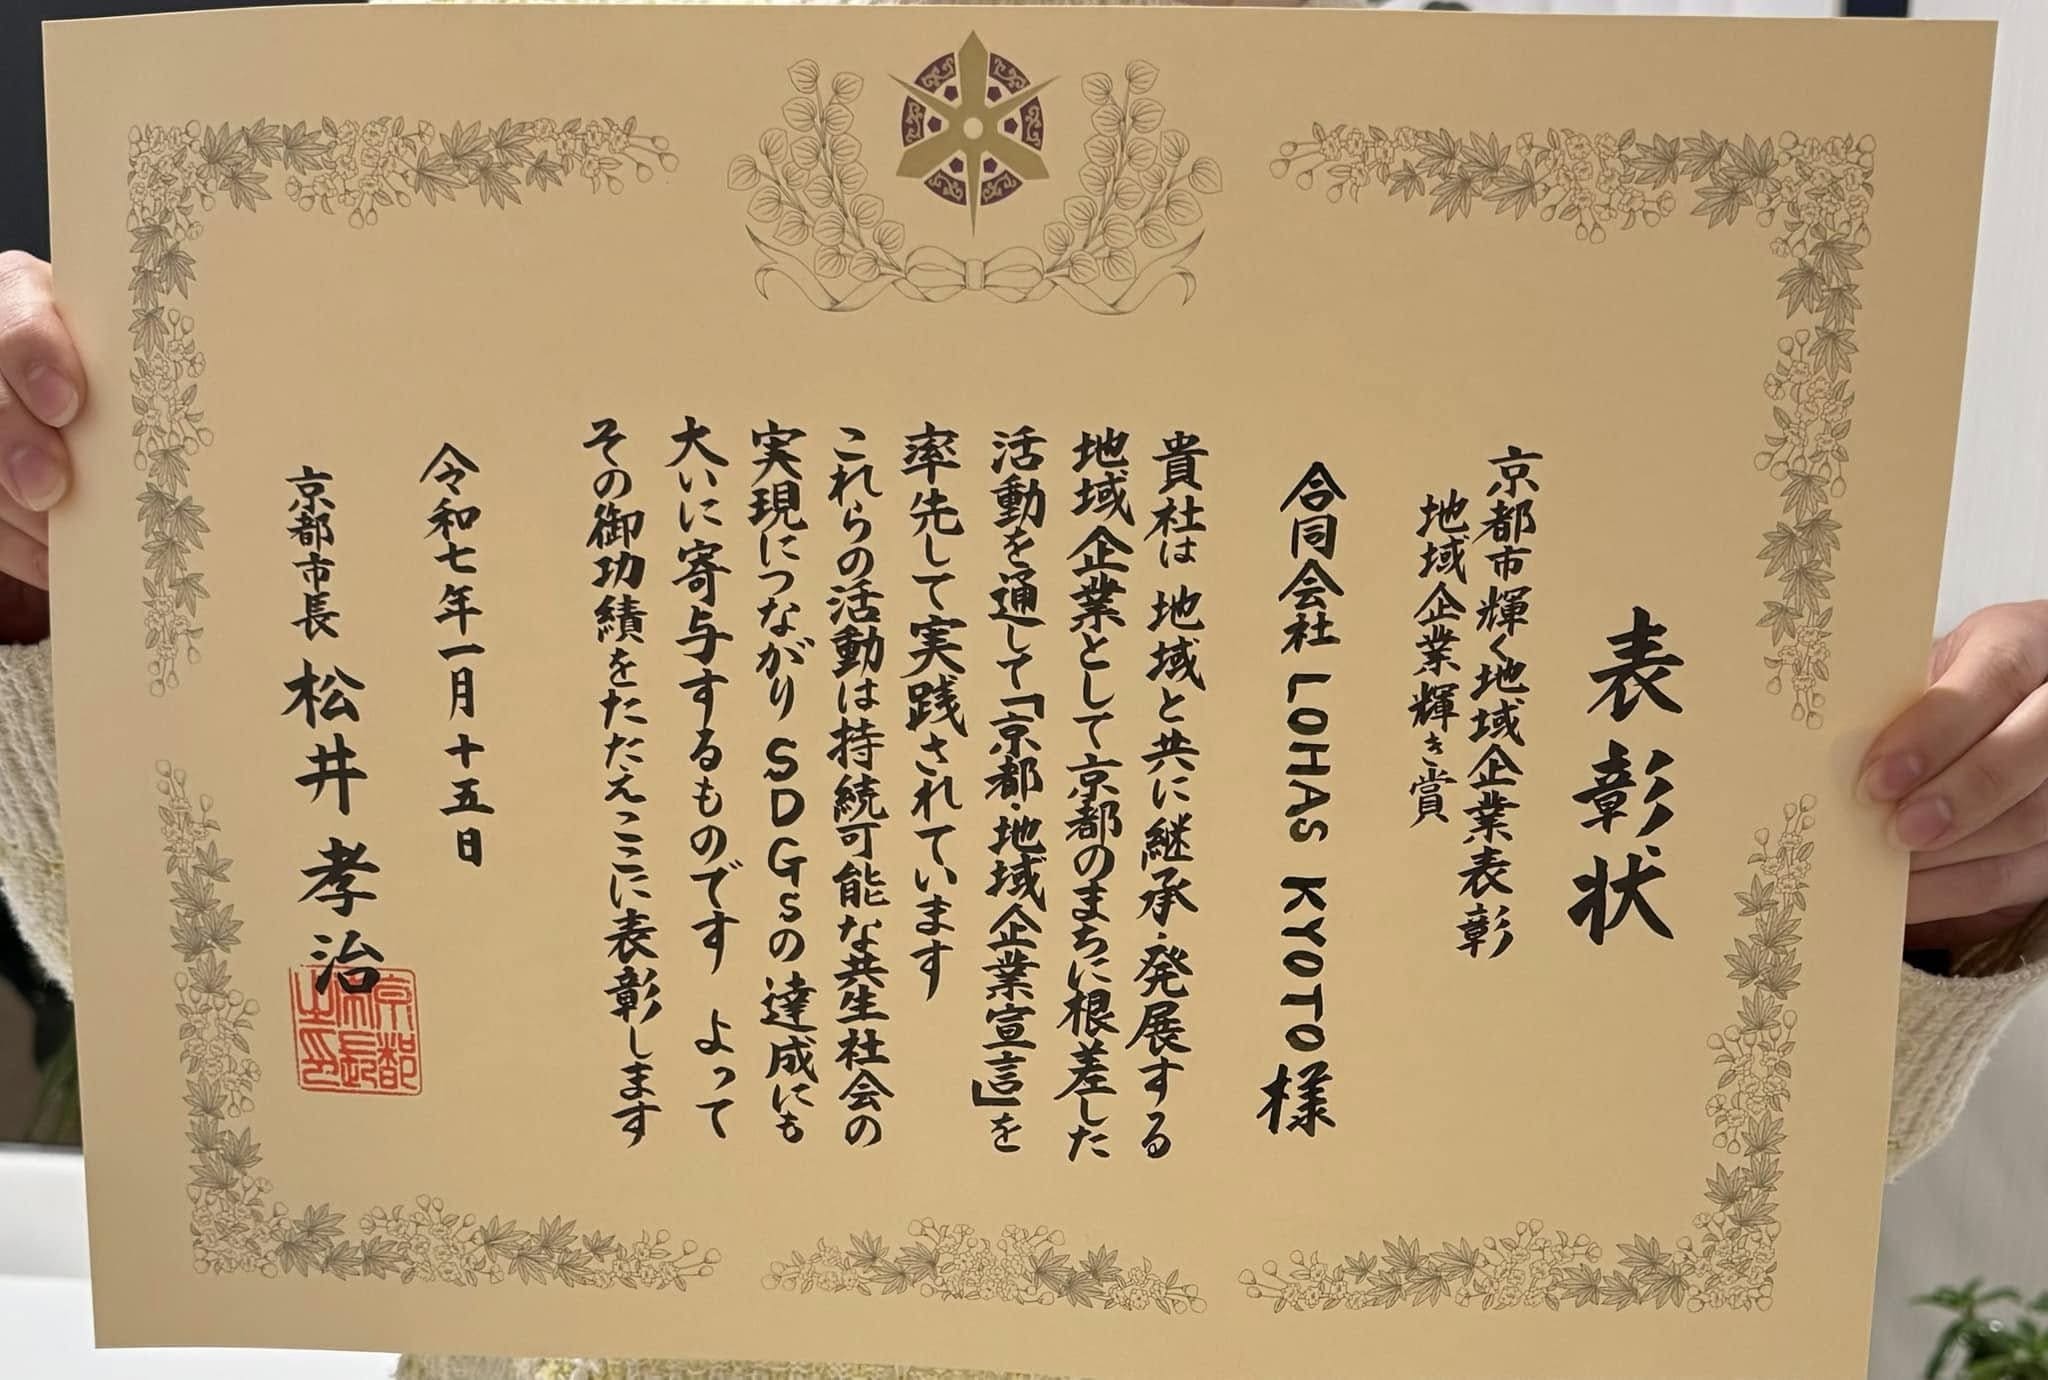 表彰状
京都市輝く地域企業表彰
地域企業輝き賞
合同会社 LOHAS KYOTO様
貴社は 地域と共に継承・発展する
地域企業として京都のまちに根差した
活動を通して「京都・地域企業宣言」を
率先して実践されています
これらの活動は持続可能な共生社会の
実現につながり SDGsの達成にも
大いに寄与するものです よって
その御功績をたたえここに表彰します
令和七年一月十五日
京都市長 松井孝治
京都市長之印